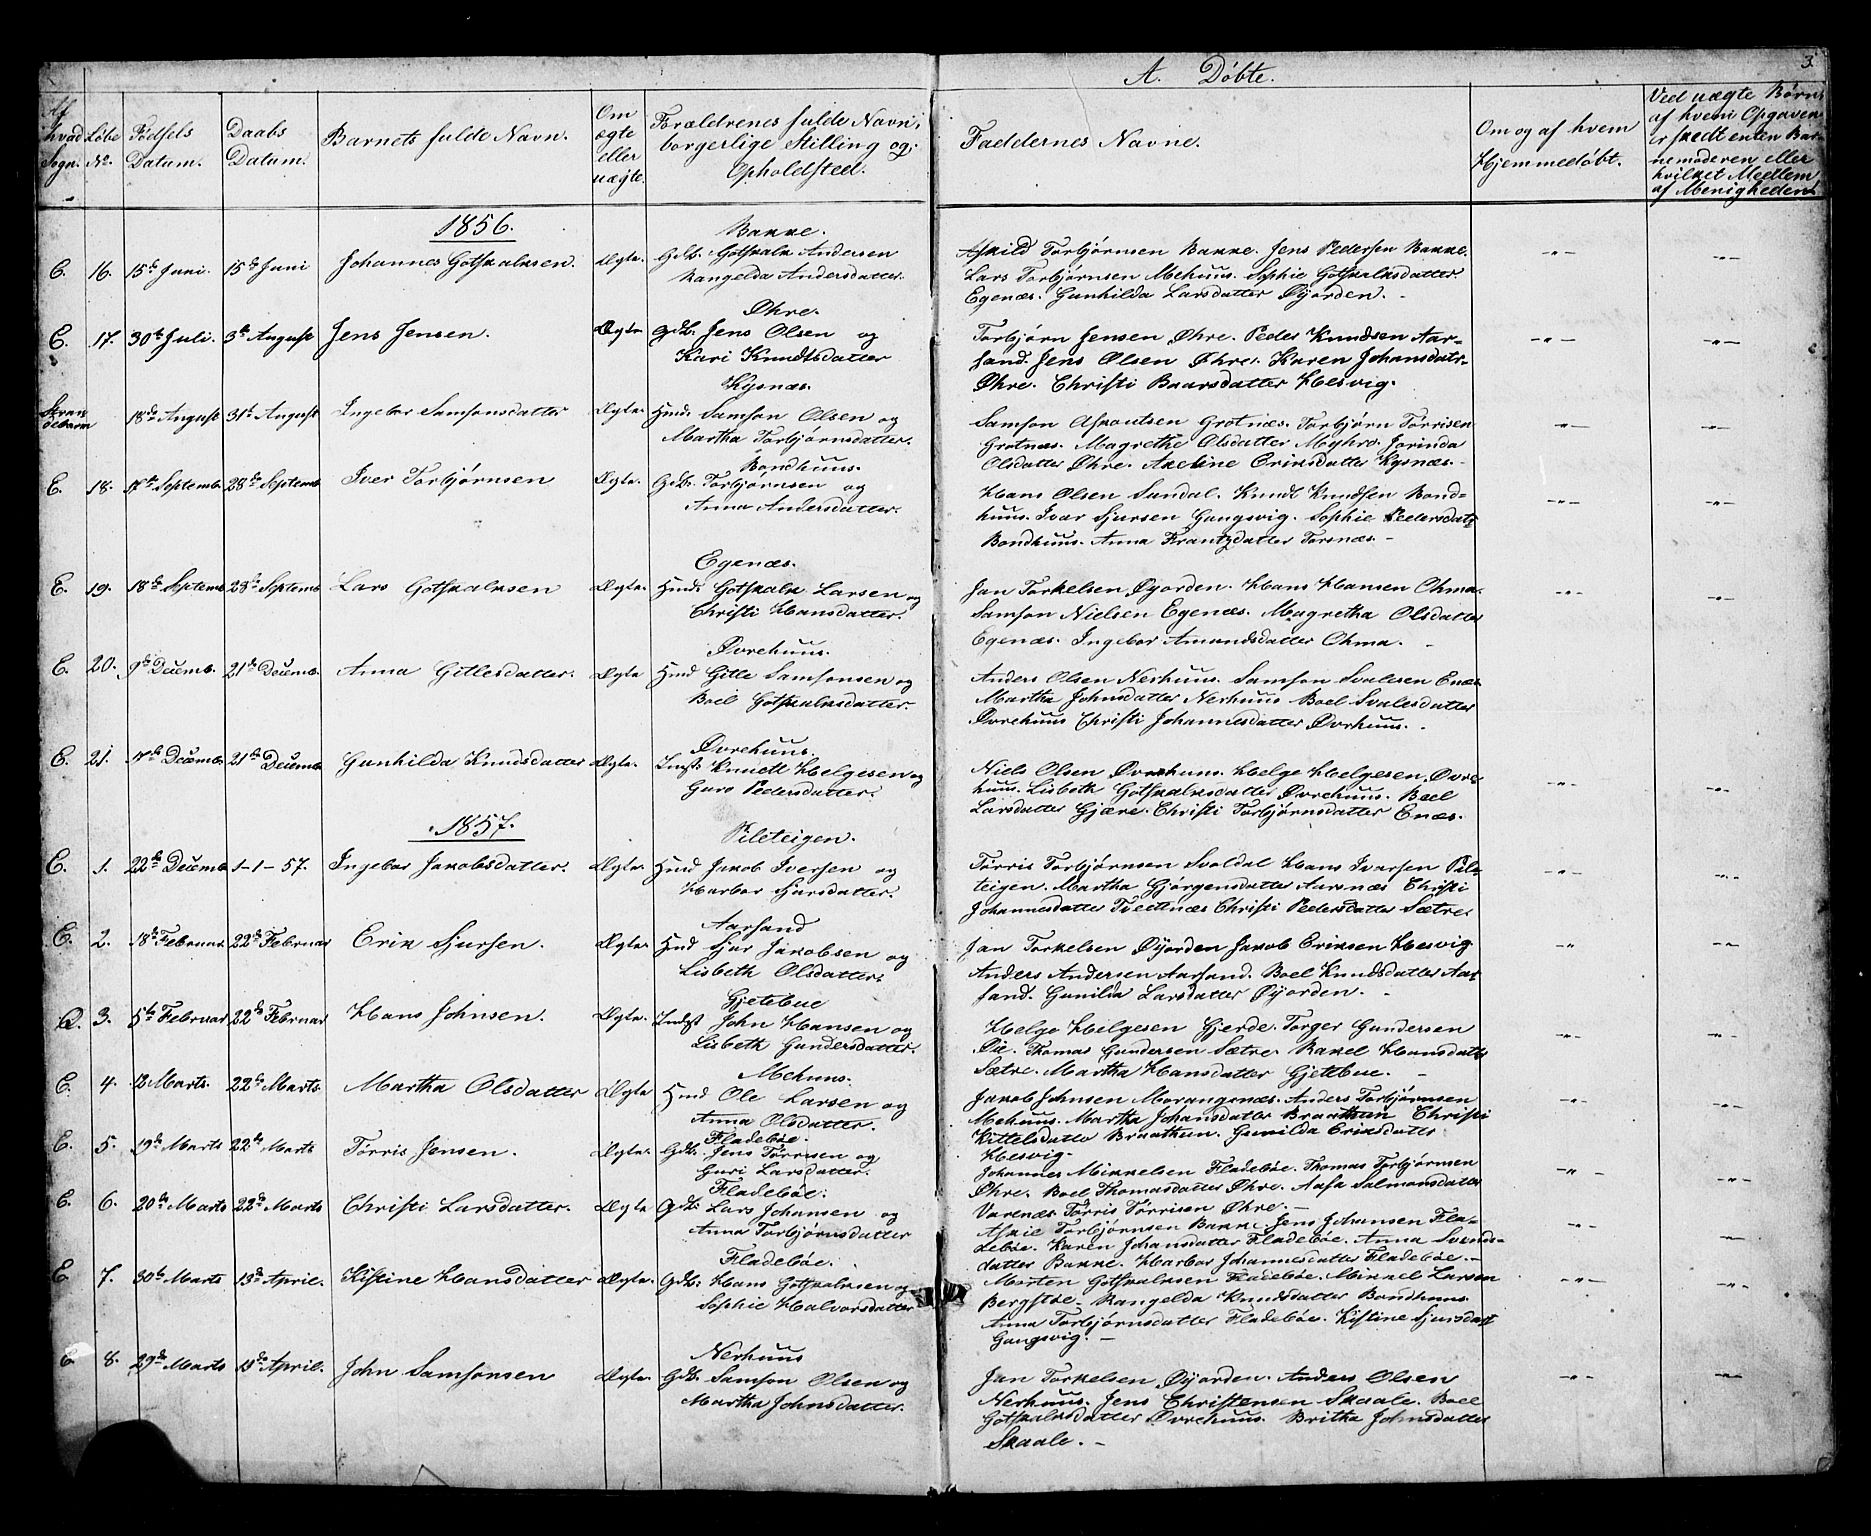 A. Døbte.
3.
Af hvad Sogn.
Løbe No.
Fødsels Datum.
Daabs Datum.
Barnets fulde Navn.
Om ægte eller uægte.
Forældrenes fulde Navn, borgerlige Stilling og Opholdsted.
Faddernes Navne.
Om og af hvem Hjemmedøbt.
Ved uægte Børn af hvem Opgaven er skedt enten Barnemoderen eller hvilket Medlem af Menigheden.
1856.
Bakke.
E. 16. 15de Juni. 15de Juni Johannes Gotskalksen. Ægte Gdb. Gotskalk Andersen
Rangelda Andersdatter.
Askild Torbjørnsen Bakke. Jens Pedersen Bakke.
Lars Torbjørnsen Mehuus. Sophie Gotskalksdatter
Egenæs. Gunhilda Larsdatter Øyorden.
Øhre.
E. 17. 30te Juli. 3de August Jens Jensen. Ægte Gdb. Jens Olsen og
Kari Knudtsdatter
Torbjørn Jensen Øhre. Peder Knudsen Aar-
sand. Jens Olsen Øhre. Karen Johansdatr
Øhre. Christi Baarsdatter Hesvig.
Kysnæs.
Stran debarm 18de August 31te August Ingebor Samsonsdatter Ægte Hmd. Samson Olsen og
Martha Torbjørnsdatter.
Samson Askoutsen Grotnæs. Torbjørn Tørrisen
Grotnæs. Magrethe Olsdatter Myhre. Jorinda
Olsdatter Øhre. Axeline Eriksdatter Kysnæs.
Bondhuus.
E. 18. 17de Septemb. 28de Septemb Iver Torbjørnsen Ægte. Gdb. Torbjørnsen og
Anna Andersdatter.
Hans Olsen Sundal. Knudt Knudsen Bond-
huus. Ivar Sjursen Gangsvig. Sophie Pedersdatr
Bondhuus. Anna Frantzdatter Torsnæs.
Egenæs.
E. 19. 18de Septemb 28de Septemb Lars Gotskalksen Ægte. Hmd. Gotskalk Larsen og
Christi Hansdatter.
Jan Torkelsen Øyorden. Hans Hansen Ohma.
Samson Nielsen Egenæs. Magretha Olsdatter
Egenæs. Ingebor Amundsdatter Ohma.
Øvrehuus.
E. 20. 9de Decemb. 21de Decemb. Anna Gitlesdatter. Ægte Hmd Gitle Samsonsen og
Boel Gotskalksdatter.
Anders Olsen Nerhuus. Samson Svalesen Enæs
Martha Johnsdatter Nerhuus Boel Svalesdatter
Øvrehuus Christi Johannesdatter Øvrehuus.
Øvrehuus.
E. 21. 11te Decemb. 21de Decemb. Gunhilda Knudsdatter Ægte. Indst. Knudt Helgesen og
Guro Pedersdatter.
Niels Olsen Øvrehuus. Helge Helgesen Øvre-
huus. Lisbeth Gotskalksdatter Øvrehuus. Boel
Larsdatter Gjære. Christi Torbjørnsdatter Enæs.
1857.
Pileteigen.
E. 1. 22de Decemb 1-1-57. Ingebor Jakobsdatter. Ægte Hmd Jakob Iversen og
Harbor Sjursdatter.
Tørris Torbjørnsen Svaldal Hans Ivarsen Pile-
teigen. Martha Gjørgensdatter Aarsnæs Christi
Johannesdatter Tveitnæs Christi Pedersdatter Sætre.
Aarsand
E. 2. 18de Februar 22de Februar Erik Sjursen. Ægte. Hmd Sjur Jakobsen og
Lisbeth Olsdatter.
Jan Torkelsen Øyorden Jakob Eriksen Hesvig
Anders Andersen Aarsand. Boel Knudsdatter Aar-
sand. Gunilda Larsdatter Øyorden.
Gjetebue
E. 3. 5te Februar 22de Februar Hans Johnsen. Ægte. Indst John Hansen og
Lisbeth Gundersdatter.
Helge Helgesen Gjerde. Torger Gundersen
Øie. Thomas Gundersen Sætre. Rakel Hansdatter
Sætre. Martha Hansdatter Gjetebue.
Mehuus.
E. 4. 13 Marts. 22de Marts. Martha Olsdatter Ægte Hmd Ole Larsen og
Anna Olsdatter.
Jakob Johnsen Morangsnæs. Anders Torbjørnsen
Mehuus. Martha Johansdatter Braathun Christi
Kittelsdatter Braathun. Gunilda Eriksdatter
Hesvig.
Fladebøe.
E. 5. 19de Marts 22de Marts Tørris Jensen. Ægte. Gdb. Jens Tørrisen og
Guri Larsdatter.
Johannes Mikkelsen Fladebøe. Thomas Torbjørnsen
Øhre. Boel Thomasdatter Øhre. Aasa Salmonsdatter
Varenæs. Tørris Tørrisen Øhre.
Fladebøe.
E. 6. 20de Marts 22de Marts Christi Larsdatter. Ægte Gdb. Lars Johansen og
Anna Torbjørnsdatter
Askil Torbjørnsen Bakke. Jens Johansen Fla-
debøe. Karen Johansdatter Fladebøe. Anna Svends-
datter Bakke. Harbor Johannesdatter Fladebøe.
Fladebøe.
E. 7. 30te Marts 13de April. Kistine Hansdatter Ægte. Gdb. Hans Gotskalksen og
Sophie Halvorsdatter
Morten Gotskalksen Fladebøe. Mikkel Larsen
Bergstøe. Rangelda Knudsdatter Bondhuus
Anna Torbjørnsdatter Fladebøe. Kistine Sjursdatt
Gangsvig.
Nerhuus
E. 8. 29de Marts 13de April. John Samsonsen Ægte. Gdb. Samson Olsen og
Martha Johnsdatter.
Jan Torkelsen Øyorden. Anders Olsen
Nerhuus. Jens Christensen Skaale. Boel
Gotskalksdatter Øvrehuus. Britha Johnsdatter
Skaale.